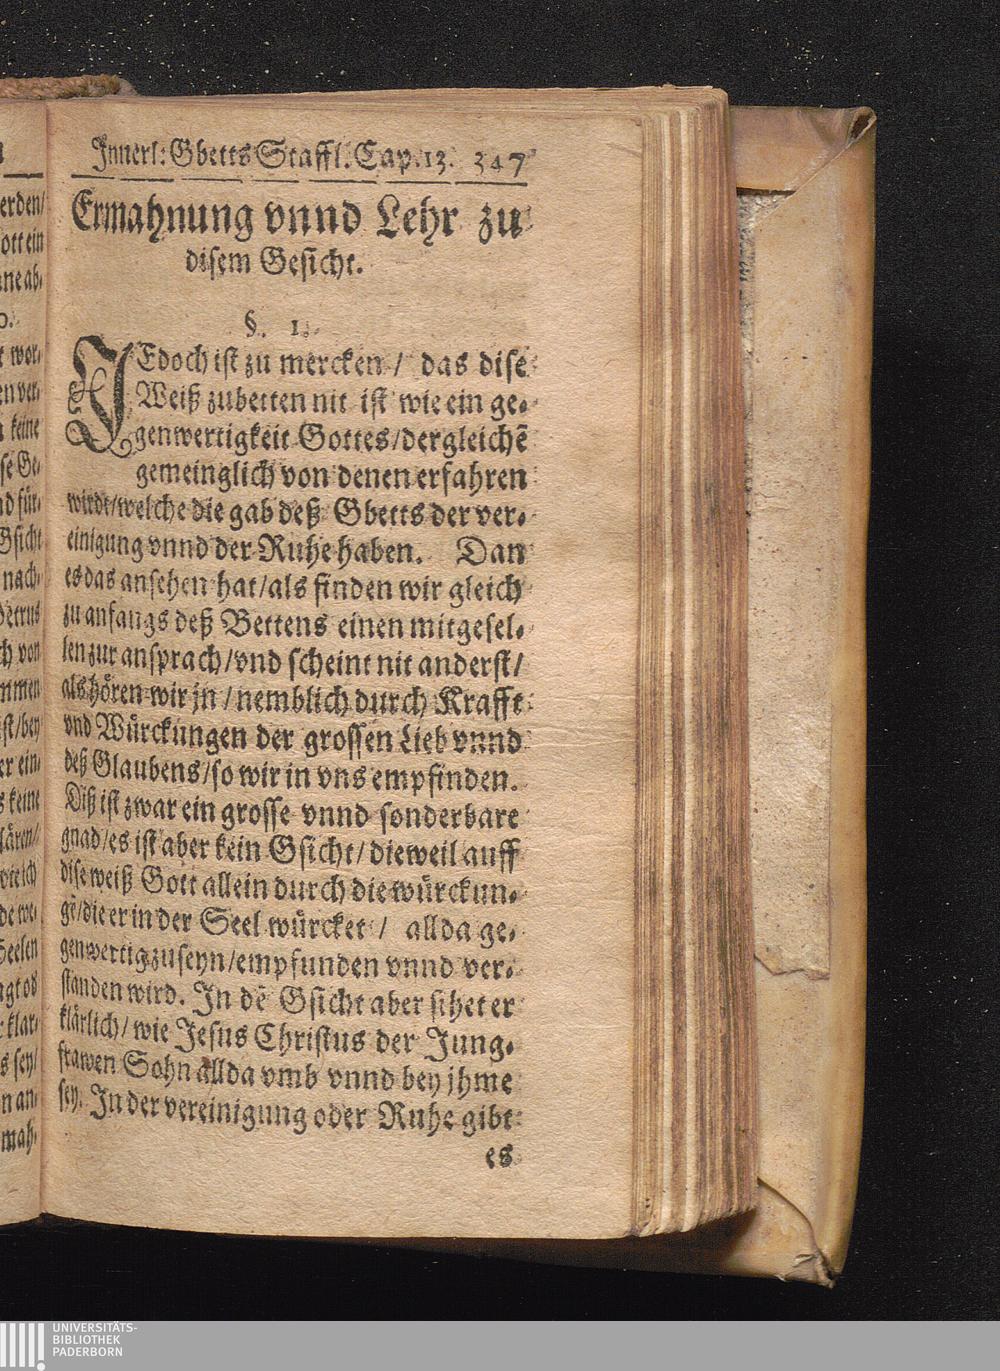 Jnnerl: Gbetts Staffl. Cap. 13. 347
Ermahnung vnnd Lehr zu
disem Gesicht.
§. 1.
JEdoch ist zu mercken / das dise
Weiß zubetten nit ist wie ein ge-
genwertigkeit Gottes / dergleichē
gemeinglich von denen erfahren
wirdt / welche die gab deß Gbetts der ver-
einigung vnnd der Ruhe haben. Dan
es das ansehen hat / als finden wir gleich
zu anfangs deß Bettens einen mitgesel-
len zur ansprach / vnd scheint nit anderst /
als hören wir jn / nemblich durch Krafft
vnd Würckungen der grossen Lieb vnnd
deß Glaubens / so wir in vns empfinden.
Diß ist zwar ein grosse vnnd sonderbare
gnad / es ist aber kein Gsicht / dieweil auff
dise weiß Gott allein durch die würckun-
gē / die er in der Seel würcket / allda ge-
genwertig zuseyn / empfunden vnnd ver-
standen wird. Jn dē Gsicht aber sihet er
klärlich / wie Jesus Christus der Jung-
frawen Sohn allda vmb vnnd bey jhme
sey. Jn der vereinigung oder Ruhe gibt
es
erden /
ott ein
ne ab-
wor-
en ver-
keine
se Ge-
nd für-
Gsicht
nach-
Petrus
ch von
mmen
ist / bey
er ein-
s keine
lären /
de we-
Seelen
ngt ob
klar-
s sey /
n an-
mah-
UNIVERSITÄTS-
BIBLIOTHEK
PADERBORN